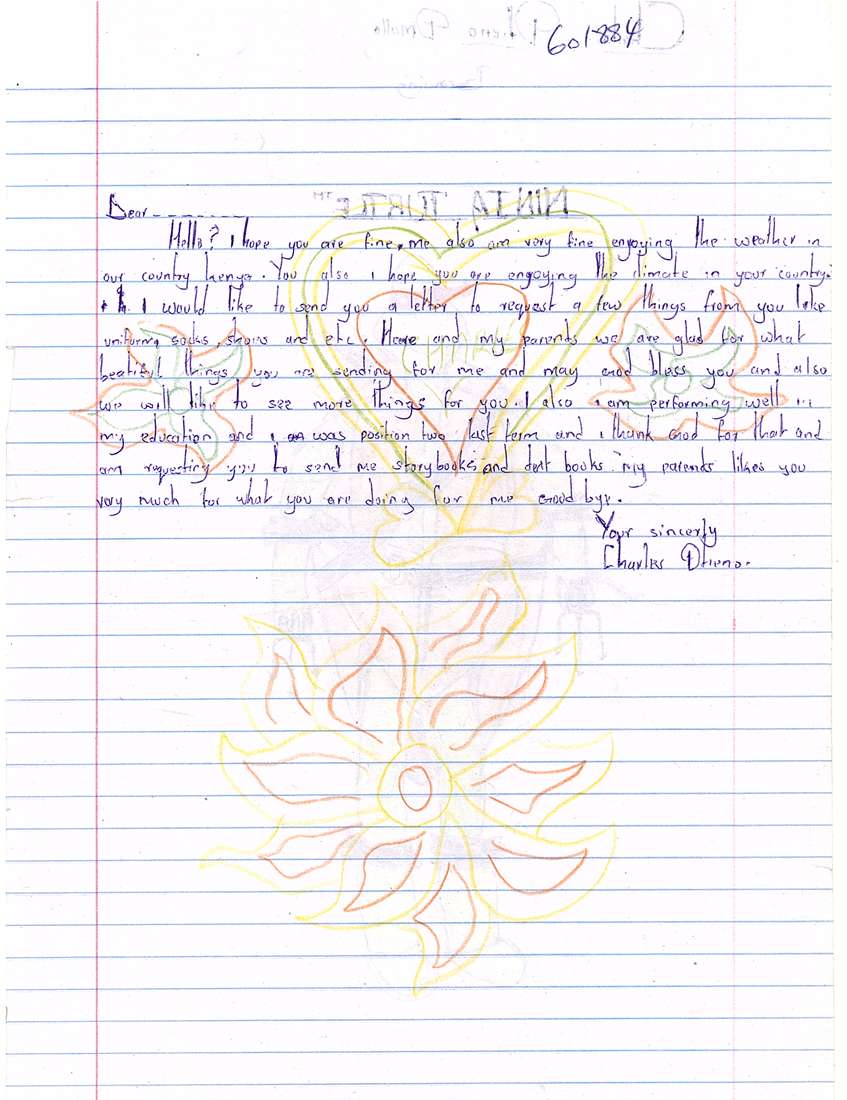 601884
NINJA TURTLE™
Dear - - - - - - - -
Hello? I hope you are fine, me also am very fine engoying the weather in
our country kenya. You also i hope you are engoying the climate in your country.
I would like to send you a letter to request a few things from you like
uniforms socks, shoes and etc. Heare and my parents we are glad for what
beatiful things you are sending for me and may God bless you and also
we will like to see more things for you. I also i am performing well in
my education and i was position two last term and i thank God for that and
am requesting you to send me storybooks and dext books. My parents likes you
very much for what you are doing for me Good bye.
Your sincerly
Charles Otieno.